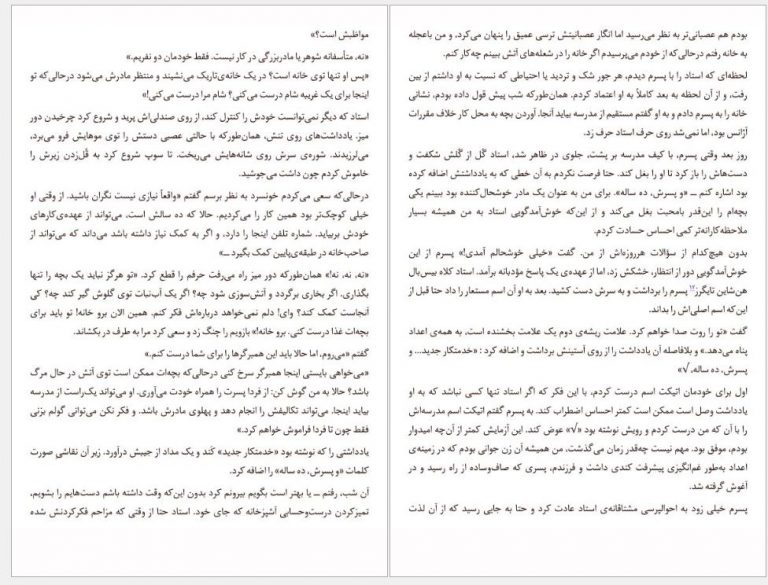 مواظبش است؟»
«نه، متأسفانه شوهر یا مادربزرگی در کار نیست. فقط خودمان دو نفریم.»
«پس او تنها توی خانه است؟ در یک خانه‌ی تاریک می‌نشیند و منتظر مادرش می‌شود درحالی‌که تو
اینجا برای یک غریبه شام درست می‌کنی؟ شام مرا درست می‌کنی!»
استاد که دیگر نمی‌توانست خودش را کنترل کند، از روی صندلی‌اش پرید و شروع کرد چرخیدن دور
میز. یادداشت‌های روی تنش، همان‌طورکه با حالتی عصبی دستش را توی موهایش فرو می‌برد،
می‌لرزیدند. شوره‌ی سرش روی شانه‌هایش می‌ریخت. تا سوپ شروع کرد به قُل‌زدن زیرش را
خاموش کردم چون داشت می‌جوشید.
درحالی‌که سعی می‌کردم خونسرد به نظر برسم گفتم «واقعاً نیازی نیست نگران باشید. از وقتی او
خیلی کوچک‌تر بود همین کار را می‌کردیم. حالا که ده سالش است، می‌تواند از عهده‌ی کارهای
خودش بربیاید. شماره تلفن اینجا را دارد، و اگر به کمک نیاز داشته باشد می‌داند که می‌تواند از
صاحب‌خانه در طبقه‌ی پایین کمک بگیرد ــ»
«نه، نه، نه!» همان‌طورکه دور میز راه می‌رفت حرفم را قطع کرد. «تو هرگز نباید یک بچه را تنها
بگذاری. اگر بخاری برگردد و آتش‌سوزی شود چه؟ اگر یک آب‌نبات توی گلوش گیر کند چه؟ کی
آنجاست کمک کند؟ وای! دلم نمی‌خواهد درباره‌اش فکر کنم. همین الان برو خانه! تو باید برای
بچه‌ات غذا درست کنی. برو خانه!» بازویم را چنگ زد و سعی کرد مرا به طرف در بکشاند.
گفتم «می‌روم، اما حالا باید این همبرگرها را برای شما درست کنم.»
«می‌خواهی بایستی اینجا همبرگر سرخ کنی درحالی‌که بچه‌ات ممکن است توی آتش در حال مرگ
باشد؟ حالا به من گوش کن: از فردا پسرت را همراه خودت می‌آوری. او می‌تواند یک‌راست از مدرسه
بیاید اینجا. می‌تواند تکالیفش را انجام دهد و پهلوی مادرش باشد. و فکر نکن می‌توانی گولم بزنی
فقط چون تا فردا فراموش خواهم کرد.»
یادداشتی را که نوشته بود «خدمتکار جدید» کَند و یک مداد از جیبش درآورد. زیر آن نقاشی صورت
کلمات «و پسرش، ده ساله» را اضافه کرد.
آن شب، رفتم ــ یا بهتر است بگویم بیرونم کرد بدون این‌که وقت داشته باشم دست‌هایم را بشویم،
تمیزکردن درست‌وحسابی آشپزخانه که جای خود. استاد حتا از وقتی که مزاحم فکرکردنش شده
بودم هم عصبانی‌تر به نظر می‌رسید اما انگار عصبانیتش ترسی عمیق را پنهان می‌کرد، و من باعجله
به خانه رفتم درحالی‌که از خودم می‌پرسیدم اگر خانه را در شعله‌های آتش ببینم چه‌کار کنم.
لحظه‌ای که استاد را با پسرم دیدم، هر جور شک و تردید یا احتیاطی که نسبت به او داشتم از بین
رفت، و از آن لحظه به بعد کاملاً به او اعتماد کردم. همان‌طورکه شب پیش قول داده بودم، نشانی
خانه را به پسرم دادم و به او گفتم مستقیم از مدرسه بیاید آنجا. آوردن بچه به محل کار خلاف مقررات
آژانس بود، اما نمی‌شد روی حرف استاد حرف زد.
روز بعد وقتی پسرم، با کیف مدرسه بر پشت، جلوی در ظاهر شد، استاد گُل از گُلش شکفت و
دست‌هاش را باز کرد تا او را بغل کند. حتا فرصت نکردم به آن خطی که به یادداشتش اضافه کرده
بود اشاره کنم ــ «و پسرش، ده ساله». برای من به عنوان یک مادر خوشحال‌کننده بود ببینم یکی
بچه‌ام را این‌قدر بامحبت بغل می‌کند و از این‌که خوش‌آمدگویی استاد به من همیشه بسیار
ملاحظه‌کارانه‌تر کمی احساس حسادت کردم.
بدون هیچ‌کدام از سؤالات هرروزه‌اش از من، گفت «خیلی خوشحالم آمدی!» پسرم از این
خوش‌آمدگویی دور از انتظار، خشکش زد، اما از عهده‌ی یک پاسخ مؤدبانه برآمد. استاد کلاه بیس‌بال
هن‌شاین تایگرز۱۲ پسرم را برداشت و به سرش دست کشید. بعد به او آن اسم مستعار را داد حتا قبل از
این‌که اسم اصلی‌اش را بداند.
گفت «تو را روت صدا خواهم کرد. علامت ریشه‌ی دوم یک علامت بخشنده است، به همه‌ی اعداد
پناه می‌دهد.» و بلافاصله آن یادداشت را از روی آستینش برداشت و اضافه کرد : «خدمتکار جدید... و
پسرش، ده ساله، √»
اول برای خودمان اتیکت اسم درست کردم، با این فکر که اگر استاد تنها کسی نباشد که به او
یادداشت وصل است ممکن است کمتر احساس اضطراب کند. به پسرم گفتم اتیکت اسم مدرسه‌اش
را با آن که من درست کردم و رویش نوشته بود «√» عوض کند. این آزمایش کمتر از آن‌چه امیدوار
بودم، موفق بود. مهم نیست چه‌قدر زمان می‌گذشت، من همیشه آن زن جوانی بودم که در زمینه‌ی
اعداد به‌طور غم‌انگیزی پیشرفت کندی داشت و فرزندم، پسری که صاف‌وساده از راه رسید و در
آغوش گرفته شد.
پسرم خیلی زود به احوالپرسی مشتاقانه‌ی استاد عادت کرد و حتا به جایی رسید که از آن لذت